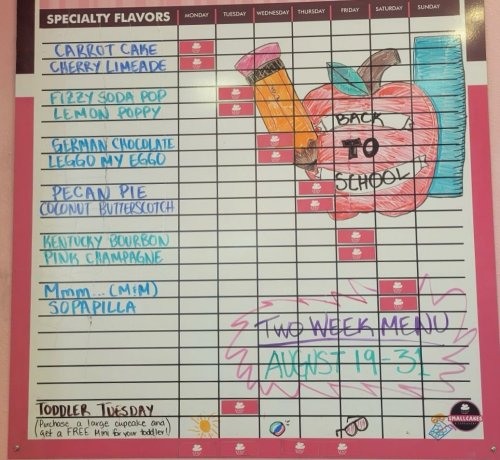 SPECIALTY FLAVORS MONDAY TUESDAY WEDNESDAY THURSDAY FRIDAY SATURDAY SUNDAY
CARROT CAKE
CHERRY LIMEADE
FIZZY SODA POP
LEMON POPPY
GERMAN CHOCOLATE
LEGGO MY EGGO
PECAN PIE
COCONUT BUTTERSCOTCH
KENTUCKY BOURBON
PINK CHAMPAGNE
Mmm... (M&M)
SOPAPILLA
BACK
TO
SCHOOL
TWO WEEK MENU
AUGUST 19-31
TODDLER TUESDAY
(Purchase a large cupcake and
get a FREE Mini for your toddler!)
SMALLCAKES